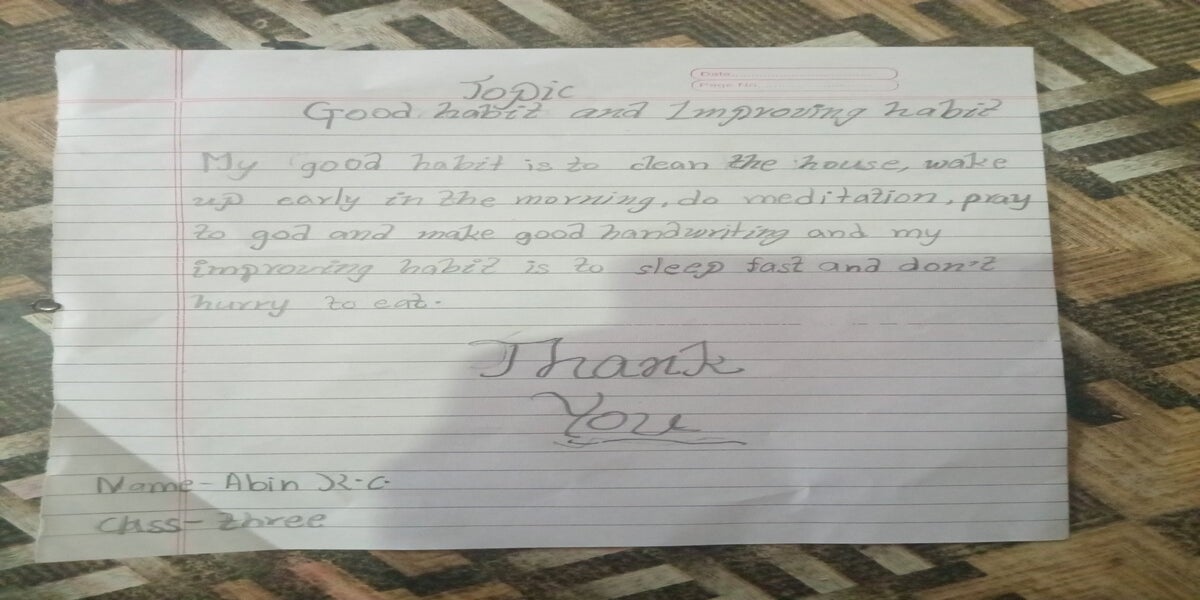 Date
Page No.
Topic
Good habit and Improving habit
My good habit is to clean the house, wake
up early in the morning, do meditation, pray
to god and make good handwriting and my
improving habit is to sleep fast and don't
hurry to eat.
Thank
You
Name - Abin K.C.
Class - three